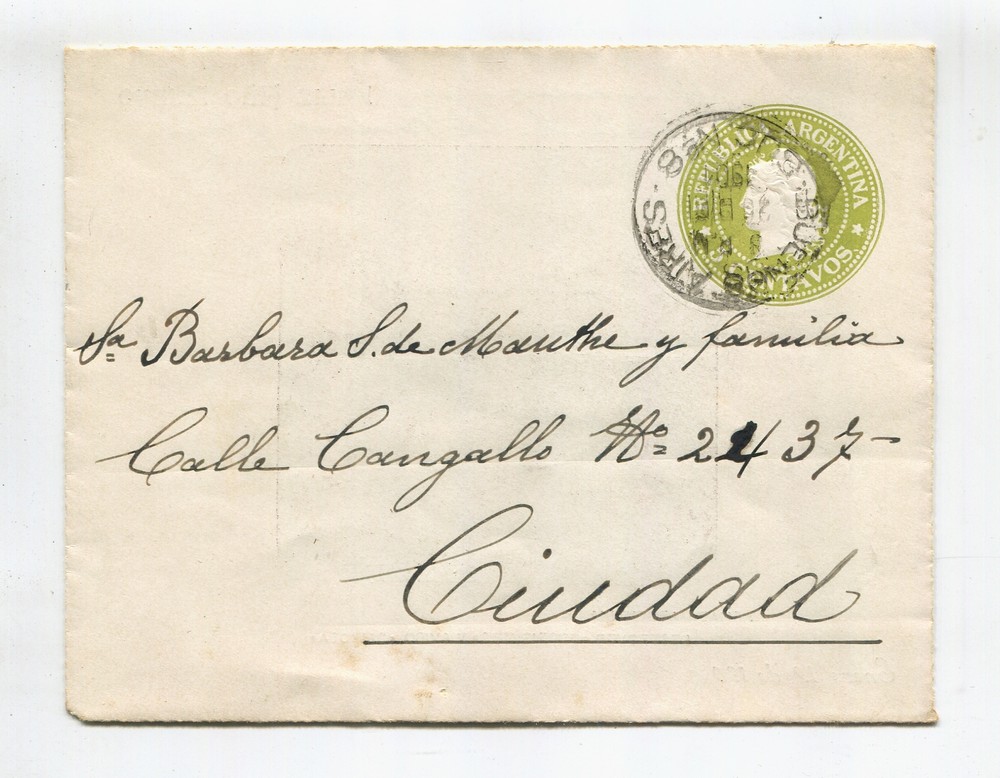 REPUBLICA ARGENTINA
CENTAVOS
BUENOS AIRES
Sa Barbara S. de Mauthe y familia
Calle Cangallo No 2437-
Ciudad